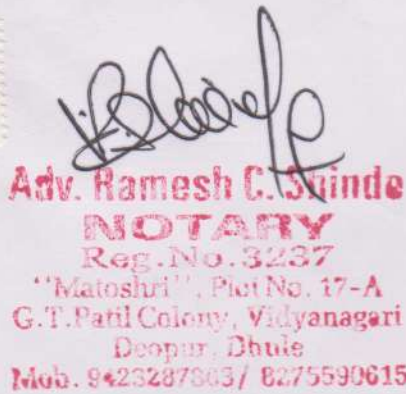 Adv. Ramesh C. Shinde
NOTARY
Reg.No.3237
"Matoshri", Plot No. 17-A
G.T.Patil Colony, Vidyanagari
Deopur, Dhule
Mob. 9423287863/ 8275590615